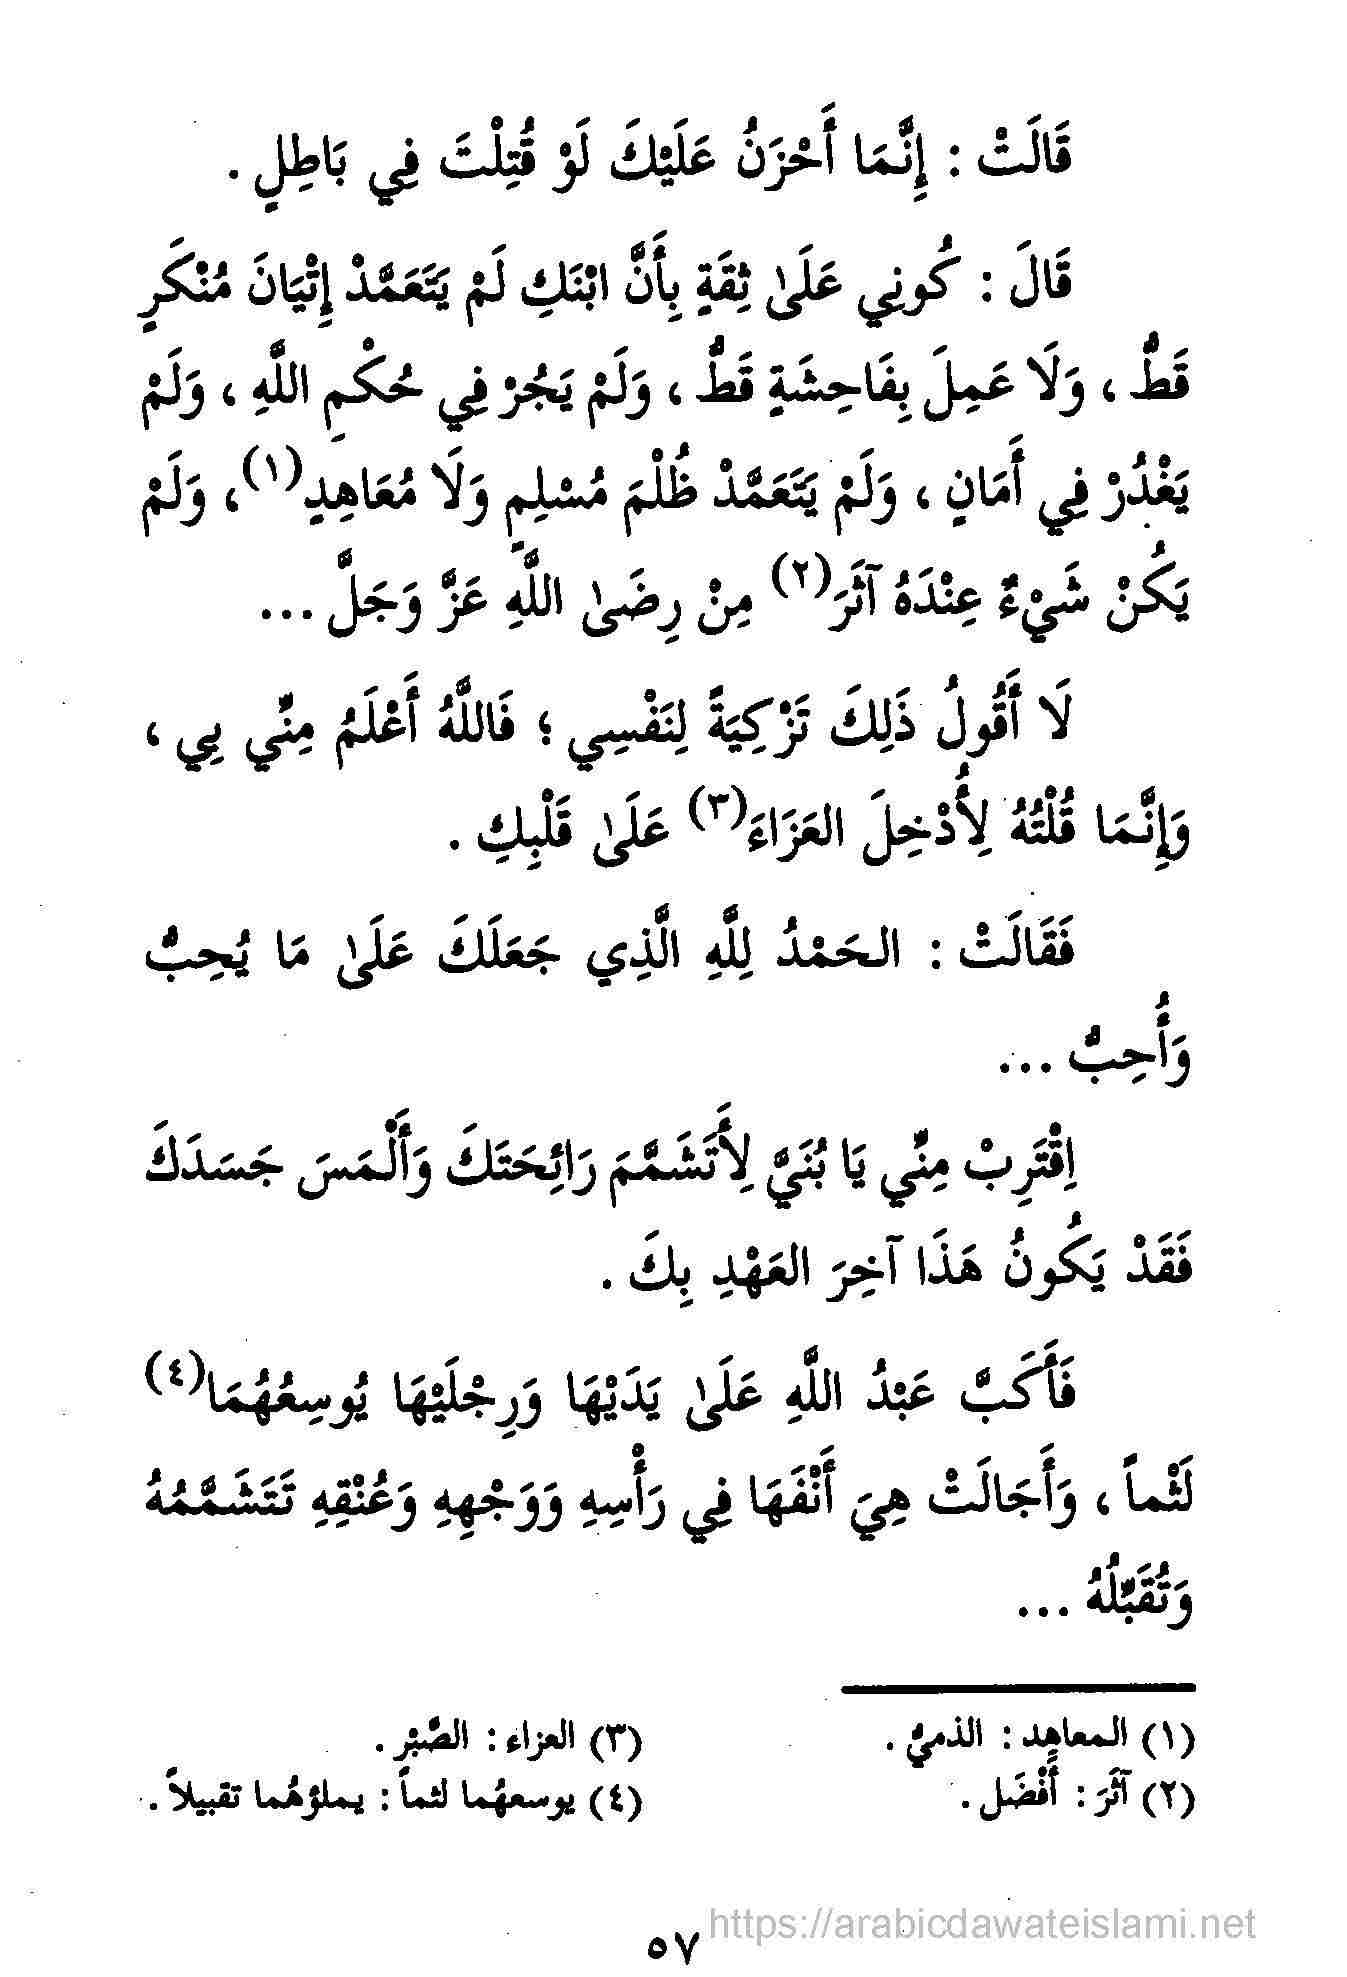 قَالَتْ : إِنَّمَا أَحْزَنُ عَلَيْكَ لَوْ قُتِلْتَ فِي بَاطِلٍ .
قَالَ : كُونِي عَلَىٰ ثِقَةٍ بِأَنَّ ابْنَكِ لَمْ يَتَعَمَّدْ إِتْيَانَ مُنْكَرٍ
قَطُّ ، وَلَا عَمِلَ بِفَاحِشَةٍ قَطُّ ، وَلَمْ يَجُرْ فِي حُكْمِ اللَّهِ ، وَلَمْ
يَغْدُرْ فِي أَمَانٍ ، وَلَمْ يَتَعَمَّدْ ظُلْمَ مُسْلِمٍ وَلَا مُعَاهِدٍ(١) ، وَلَمْ
يَكُنْ شَيْءٌ عِنْدَهُ آثَرَ(٢) مِنْ رِضَىٰ اللَّهِ عَزَّ وَجَلَّ ...
لَا أَقُولُ ذَلِكَ تَزْكِيَةً لِنَفْسِي ؛ فَاللَّهُ أَعْلَمُ مِنِّي بِي ،
وَإِنَّمَا قُلْتُهُ لِأُدْخِلَ العَزَاءَ(٣) عَلَىٰ قَلْبِكِ .
فَقَالَتْ : الحَمْدُ لِلَّهِ الَّذِي جَعَلَكَ عَلَىٰ مَا يُحِبُّ
وَأُحِبُّ ...
اِقْتَرِبْ مِنِّي يَا بُنَيَّ لِأَتَشَمَّمَ رَائِحَتَكَ وَأَلْمَسَ جَسَدَكَ
فَقَدْ يَكُونُ هَذَا آخِرَ العَهْدِ بِكَ .
فَأَكَبَّ عَبْدُ اللَّهِ عَلَىٰ يَدَيْهَا وَرِجْلَيْهَا يُوسِعُهُمَا(٤)
لَثْماً ، وَأَجَالَتْ هِيَ أَنْفَهَا فِي رَأْسِهِ وَوَجْهِهِ وَعُنْقِهِ تَتَشَمَّمُهُ
وَتُقَبِّلُهُ ...
(١) المعاهِد : الذميُّ .
(٢) آثَرَ : أَفْضَل .
(٣) العزاء : الصَّبْر .
(٤) يوسعهُما لثماً : يملؤهُما تقبيلاً .
https://arabicdawateislami.net
٥٧